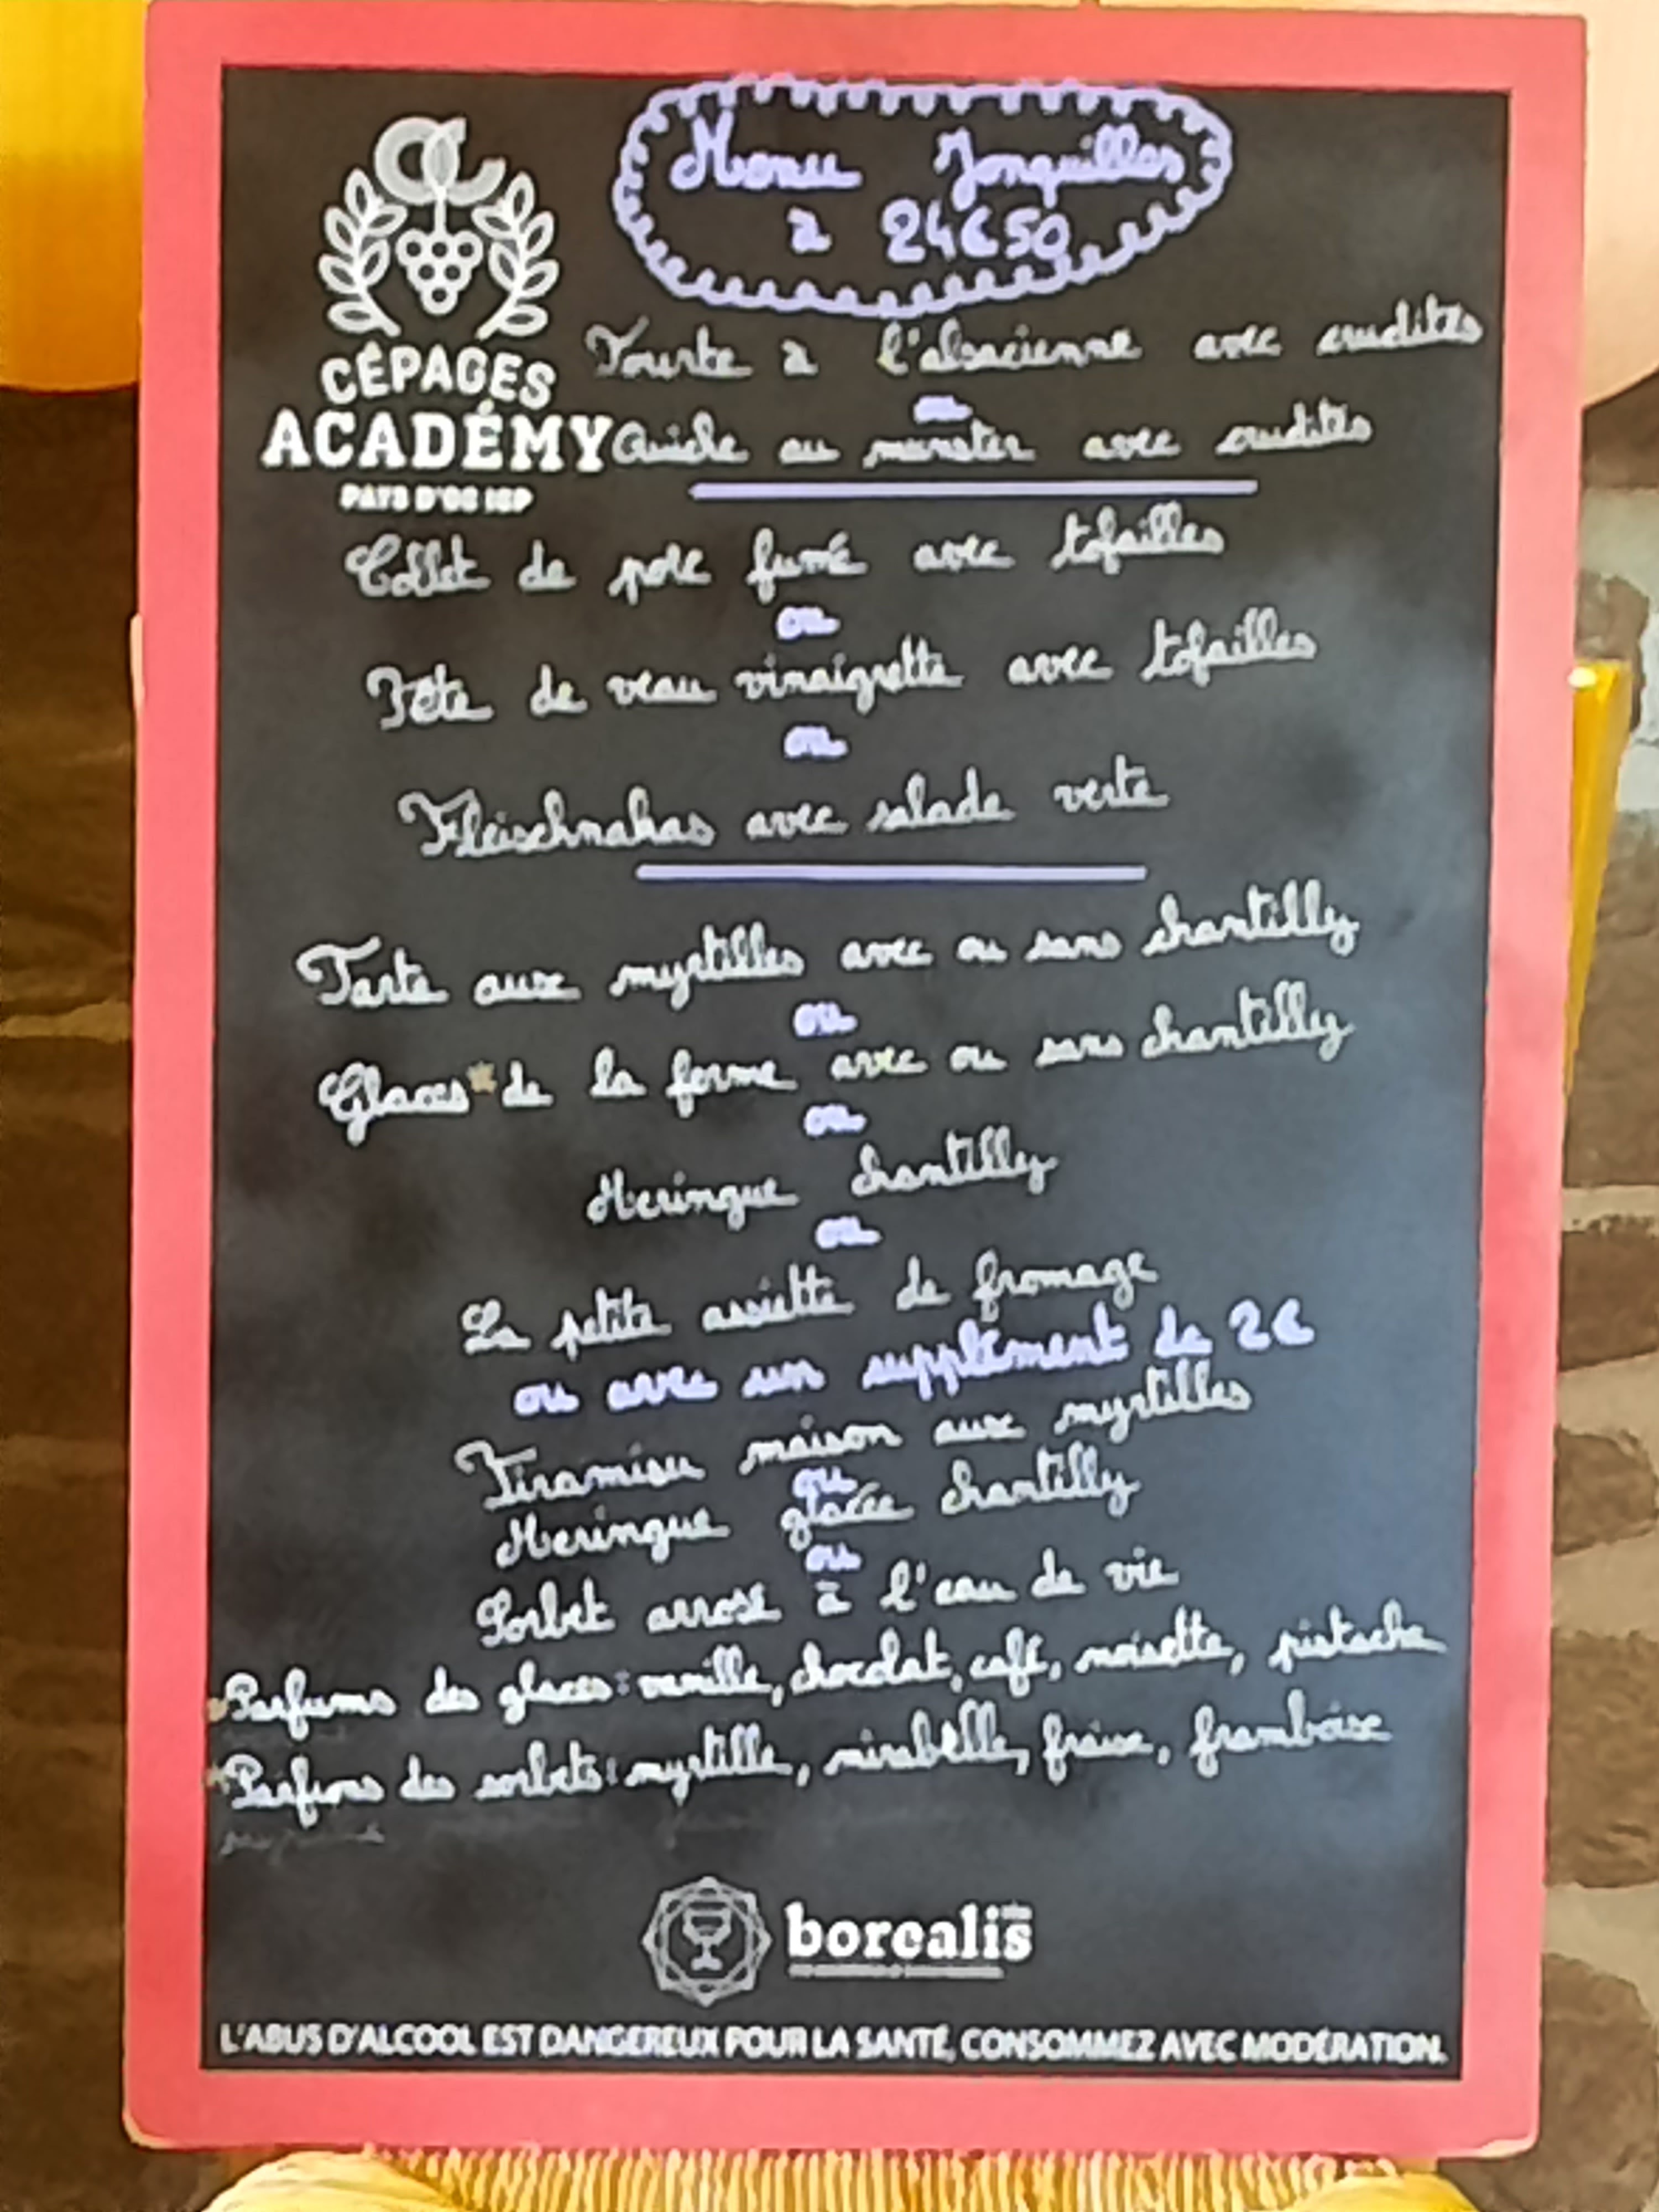 Menu Jonquilles
à 24€50
CÉPAGES
ACADÉMY
PAYS D'OC IGP
Tourte à l'alsacienne avec crudités
ou
Quiche au munster avec crudités
Collet de porc fumé avec tofailles
ou
Tête de veau vinaigrette avec tofailles
ou
Fleischnakas avec salade verte
Tarte aux myrtilles avec ou sans chantilly
ou
Glaces* de la ferme avec ou sans chantilly
ou
Meringue chantilly
ou
La petite assiette de fromage
ou avec un supplément de 2€
Tiramisu maison aux myrtilles
ou
Meringue glacée chantilly
ou
Sorbet arrosé à l'eau de vie
*Parfums des glaces: vanille, chocolat, café, noisette, pistache
*Parfums des sorbets: myrtille, mirabelle, fraise, framboise
borealis
L'ABUS D'ALCOOL EST DANGEREUX POUR LA SANTÉ, CONSOMMEZ AVEC MODÉRATION.